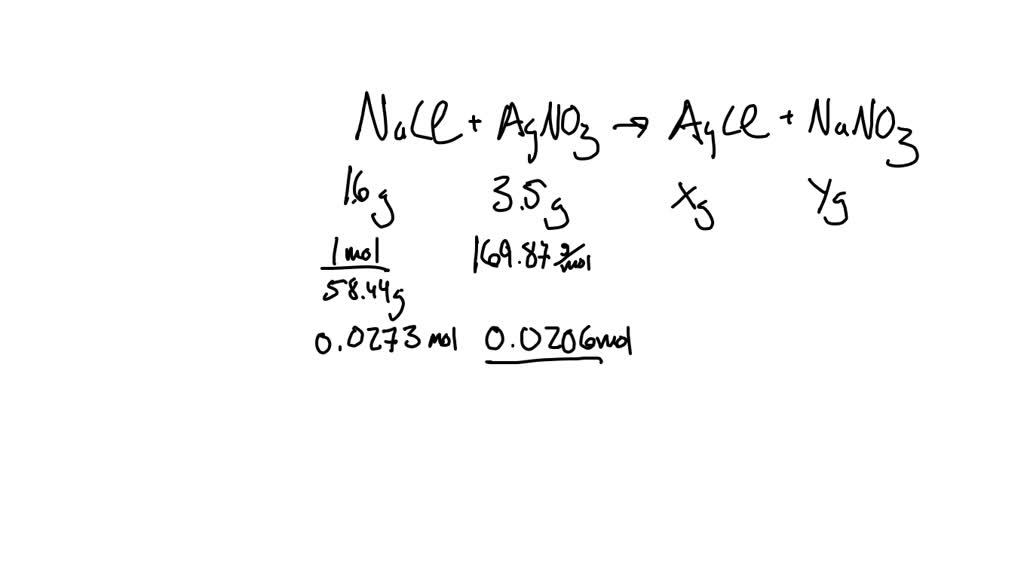 NaCl + AgNO3 → AgCl + NaNO3
1.6g 3.5g Xg Yg
1 mol 169.87 g/mol
58.44g
0.0273 mol 0.0206mol